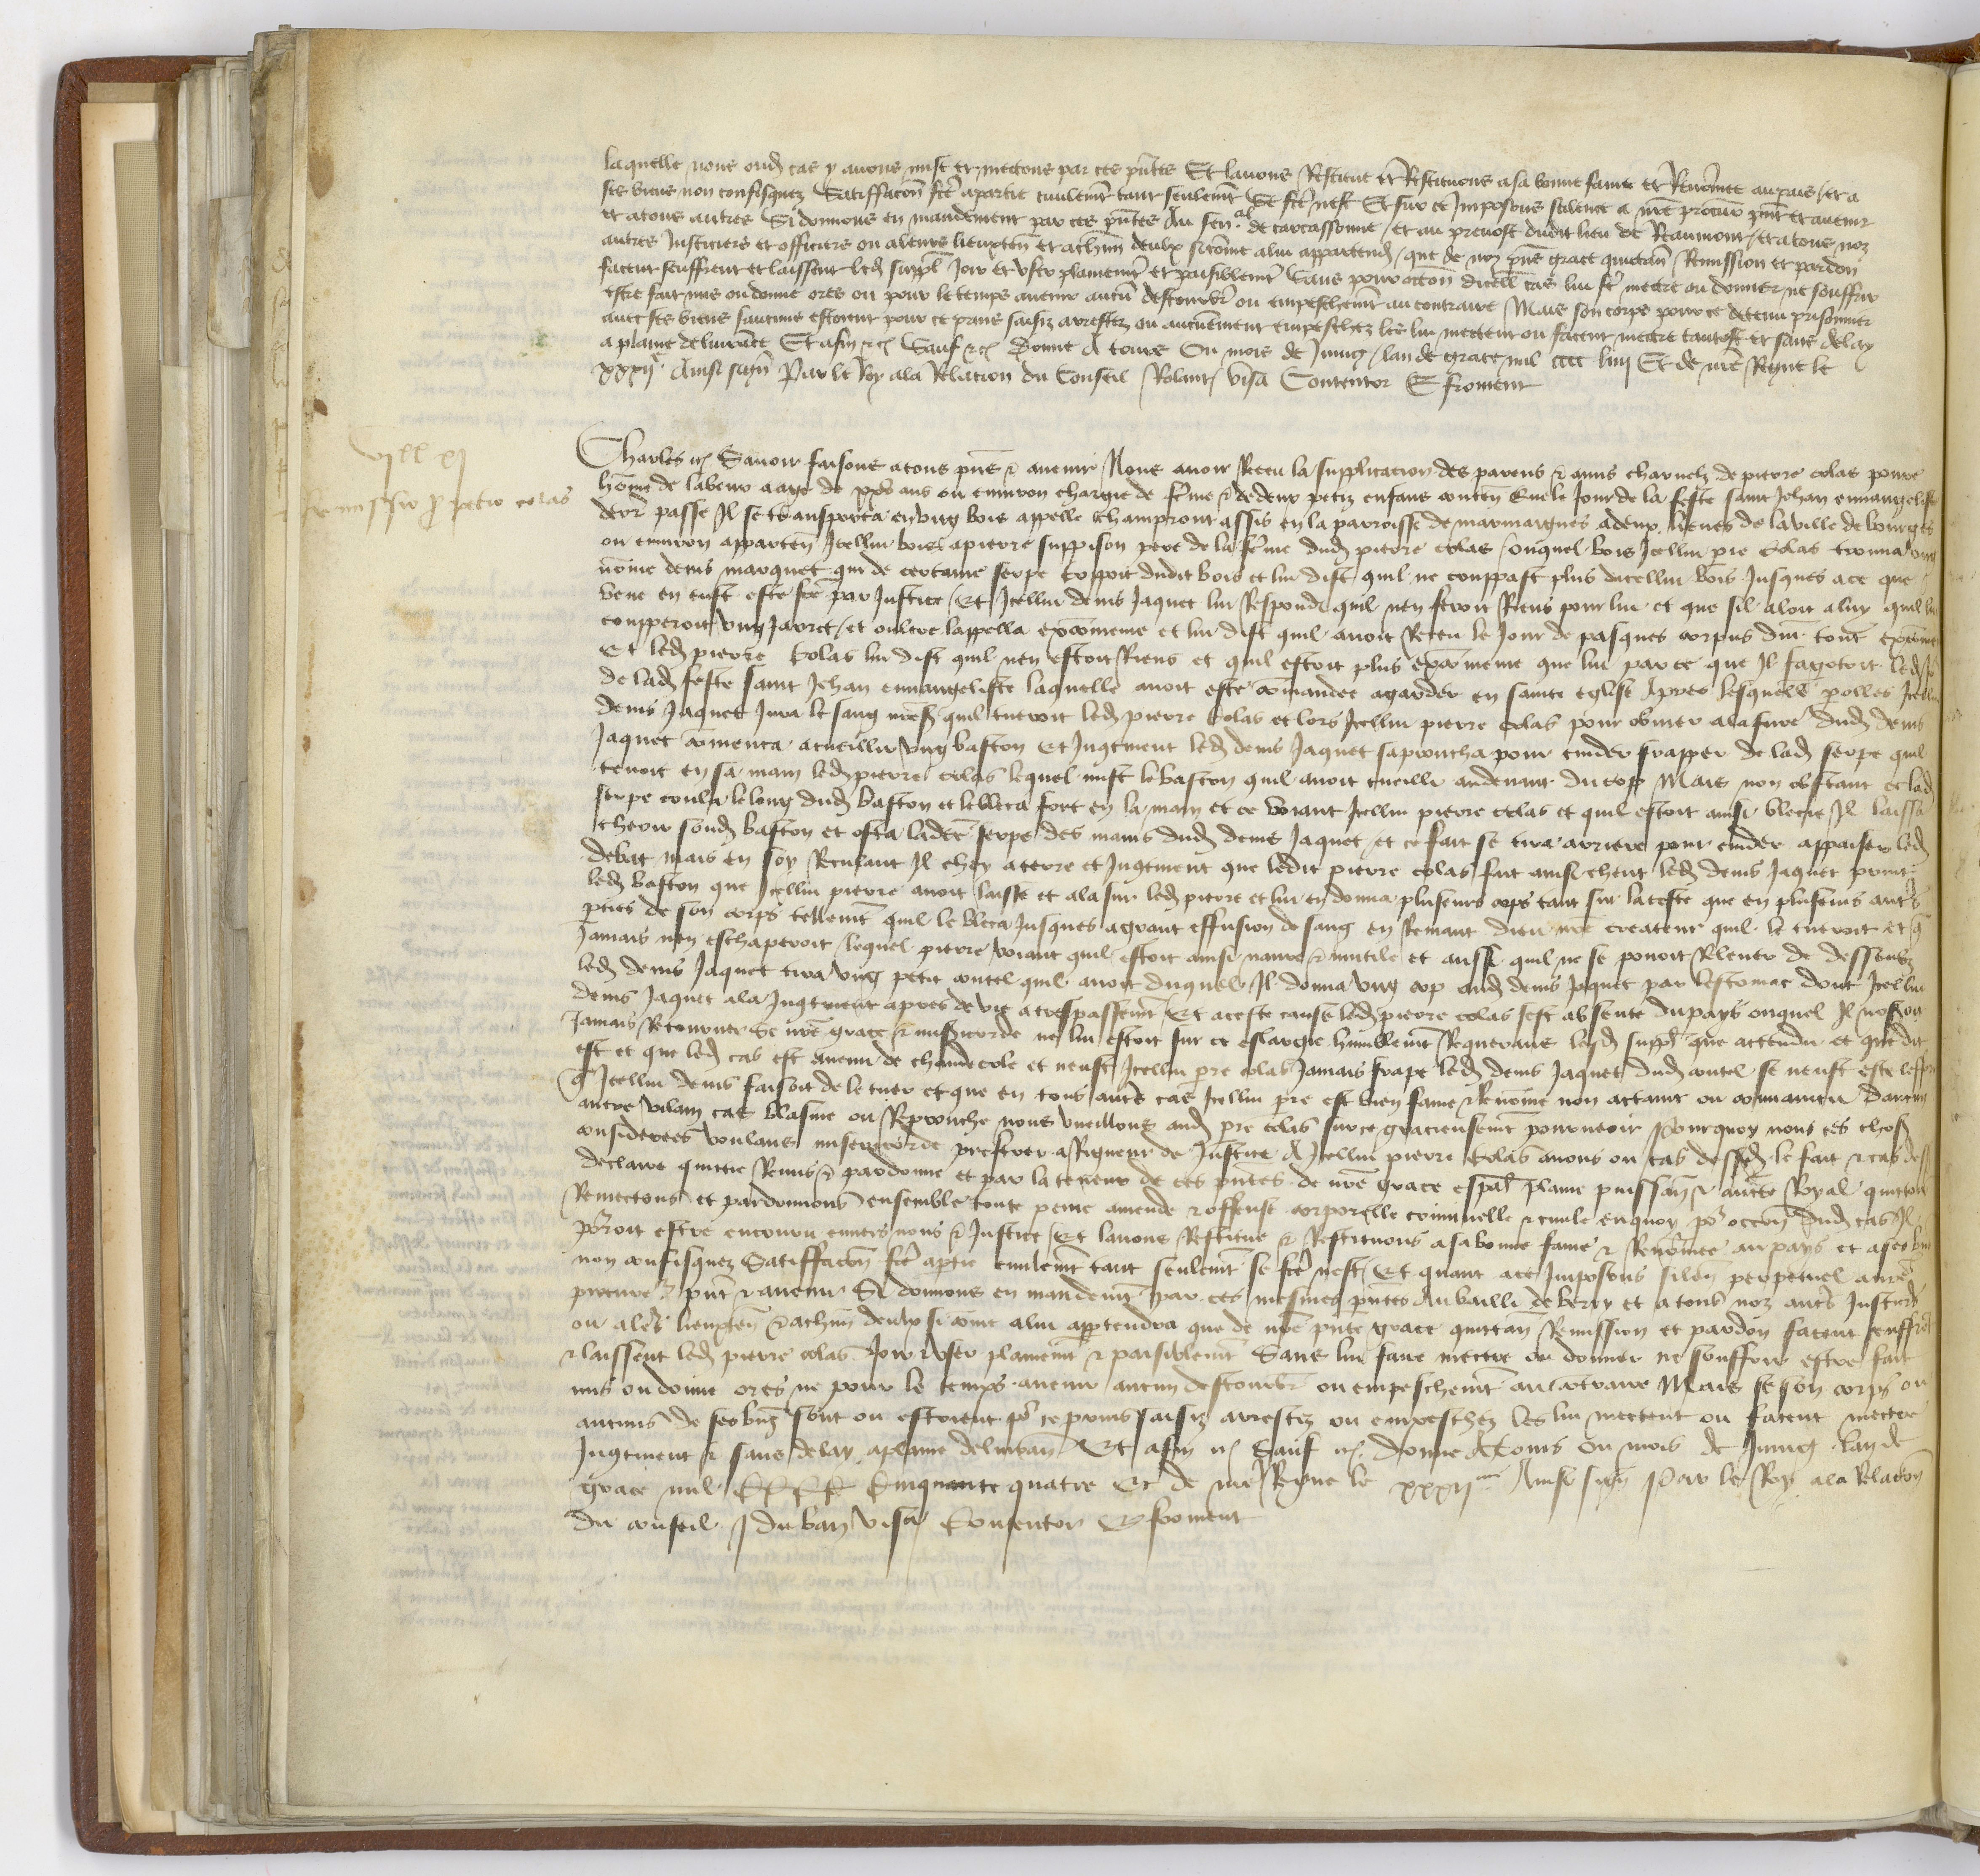 laquelle nous oud cas y avons mist et mectons par ces pntes Et lavons Restitue et Restituons a sa bonne fame et Renomee au pais et a
ses biens non confisquez Satisffacon fcte a partie civilemt tant seulemt Se fcte nest Et sur ce Imposons silence a nre procur pnt et avenir
et a tous autres Si donnons en mandement par ces pntes Au senal de carcassonne et au prevost dudit lieu de Reaumont et a tous noz
autres Justiciers et officiers ou a leurs lieuxten et a chun deulx si come a lui appartiend que de noz pns grace quictan Remission et pardon
facent seuffrent et laissent led suppl Joir et user plainemt et paisiblemt Sans pour occon dicell cas lui fe mectre ou donner ne souffrir
estre fait mis ou donne ores ou pour le temps avenir aucun destourbr ou empeschemt au contraire Mais son corps pour ce detenu prisonnier
avec ses biens saucuns estoient pour ce prins saisiz arrestez ou aucunement empeschez les lui mectent ou facent mectre tantost et sans delay
a plaine delivrance Et afin etc Sauf etc Donne A tours Ou mois de Juing lan de grace mil cccc liiij Et de nre Regne le
xxxije Ainsi sign Par le Roy a la Relacion du Conseil Rolant visa Contentor E froment
viijxx xj
Remissio p petro colas
Charles etc Savoir faisons a tous pns et avenir Nous avoir Receu la supplicacion des parens et amis charnelz de pierre colas povre
home de labeur aage de xxv ans ou environ chargie de feme et de deux petiz enfans conten Que le Jour de la feste saint Jehan euvangeliste
der passe Il se transporta en ung bois appelle champront assis en la parroisse de marmaignes a deux lieues de la ville de bourges
ou environ apparten Icellui bois a pierre suppison pere de la feme dud pierre colas ouquel bois Icellui pre Colas trouva ung
nome denis Jaquet qui de certaine serpe coppoit dudit bois et lui dist quil ne couppast plus dicellui bois Jusques a ce que
veue en eust este fce par Justice Et Icellui denis Jaquet lui Respondi quil nen feroit Riens pour lui et que sil aloit a luy quil lui
coupperoit ung Jarret et oultre lappella excomenie et lui dist quil avoit Receu le Jour de pasques corpus dni tout excome
Et led pierre Colas lui dist quil nen estoit Riens et quil estoit plus excomenie que lui par ce que Il fagotoit led Jo
de lad feste saint Jehan euvangeliste laquelle avoit este comandee a garder en sainte eglise Apres lesquell polles Icellui
denis Jaquet Jura le sang nre sr quil tueroit led pierre Colas et lors Icellui pierre colas pour obvier a la fureur dud denis
Jaquet comenca a cueillir ung baston Et Ingtment led denis Jaquet saproucha pour cuider frapper de lad serpe quil
tenoit en sa main led pierre colas lequel mist le baston quil avoit cueilli au devant du cop Mais non obstant ce lad
serpe coula le long dud baston et le bleca fort en la main et ce voiant Icellui pierre colas et quil estoit ainsi blecie Il laissa
cheoir soud baston et osta ladce serpe des mains dud denis Jaquet et ce fait se tira arriere pour cuider appaiser led
debat mais en soy Reculant Il chey a terre et Ingtment que ledit pierre colas fut ainsi cheut led denis Jaquet print
led baston que Icellui pierre avoit laisse et ala sur led pierre et lui en donna pluseurs cops tant sur la teste que en pluseurs autrs
pties de son corps tellemt quil le bleca Jusques a grant effusion de sang en Reniant dieu nre createur quil le tueroit et q
Jamais nen eschaperoit lequel pierre voiant quil estoit ainsi navre et mutile et aussi quil ne se povoit Relever de dessoubz
led denis Jaquet tira ung petit coutel quil avoit duquel Il donna ung cop aud denis Jaquet par lestomac dont Icellui
denis Jaquet ala Ingtment apres de vie a trespassemt Et a ceste cause led pierre colas sest absente du pays ouquel Il noseroit
Jamais Retourner Se nre grace et misicorde ne lui estoit sur ce eslargie humblemt Requerans lesd suppl que actendu ce que dit
est et que led cas est avenu de chaude cole et neust Icellui pre colas Jamais frape led denis Jaquet dud coutel se neust este leffort
q Icellui denis faisoit de le tuer et que en tous autrs cas Icellui pre est bien fame et Renome non actaint ou convaincu daucun
autre vilain cas blasme ou Reprouche nous vueillons aud pre colas sur ce gracieusemt pourveoir Pourquoy nous ces choses
considerees voulans misericorde preferer a Rigueur de Justice A Icellui pierre Colas avons ou cas dessusd le fait et cas dess
declaire quicte Remis et pardonne et par la teneur de ces pntes de nre grace espal plaine puissan et aucte Royal quictons
Remectons et pardonnons ensemble toute peine amende et offense corporelle criminelle et civile en quoy pr occon dud cas Il
porroit estre encouru envers nous et Justice Et lavons Restitue et Restituons a sa bonne fame et Renomee au pays et a ses biens
non confisquez Satisffacon fcte a ptie civilemt tant seulemt se fcte nest Et quant a ce Imposons silen perpetuel a nre
procureur pnt et avenir Si donnons en mandemt par ces mesmes pntes Au bailli de berry et a tous noz autrs Justiciers
ou a leurs lieuxten et a chun deulx si come a lui appartendra que de nre pnte grace quictan Remission et pardon facent seuffrent
et laissent led pierre colas Joir et user plainemt et paisiblemt Sans lui faire mectre ou donner ne souffrir estre fait
mis ou donne ores ne pour le temps avenir aucun destourbr ou empeschemt au contraire Mais se son corps ou
aucuns de ses biens sont ou estoient pr ce prins saisiz arrestez ou empeschez les lui mectent ou facent mectre
Ingtment et sans delay a plaine delivran Et afin etc Sauf etc Donne A Tours Ou mois de Juing lan de
grace mil CCCC Cinquante quatre Et de nre Regne le xxxijme Ainsi sign Par le Roy a la Relacon
du conseil J duban visa Contentor E froment